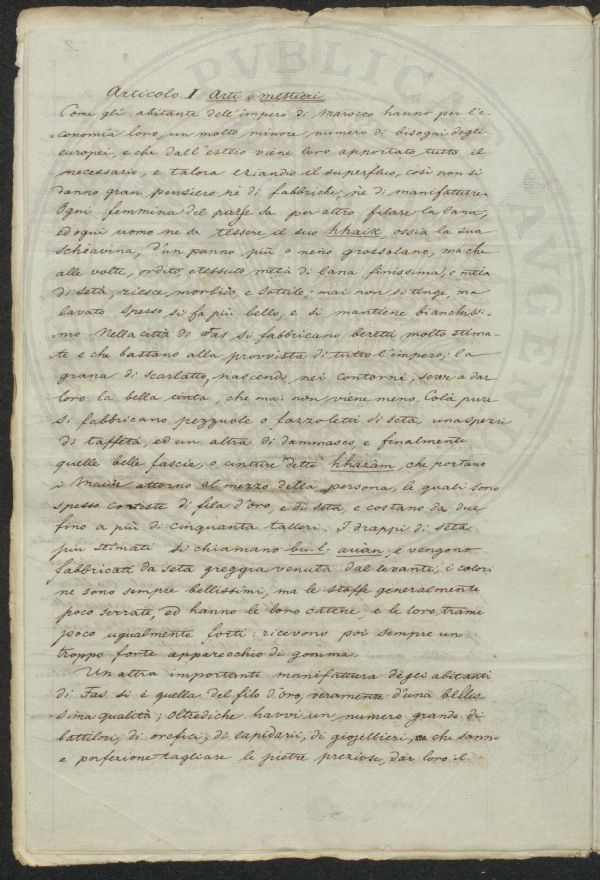 Articolo I Arti e mestieri
Come gli abitanti dell'impero di Marocco hanno per l'e-
conomia loro, un molto minore numero di bisogni degli
europei, e che dall'estero viene loro apportato tutto il
necessario, e talora eziandio il superfluo, così non si
danno gran pensiero nè di fabbriche, nè di manifatture.
Ogni femmina del paese sa per altro filare la lana,
ed ogni uomo ne sa tessere il suo hhaik, ossia la sua
schiavina, d'un panno più o meno grossolano, ma che
alle volte, ordito, e tessuto metà di lana finissima, e metà
di seta, riesce morbido, e sottile; mai non si tinge, ma
lavato spesso si fa più bello, e si mantiene bianchissi-
mo. Nella città di Fas si fabbricano beretti molto stima-
ti e che bastano alla provvista di tutto l'impero; la
grana di scarlatto, nascendo nei contorni, serve a dar
loro la bella tinta, che mai non viene meno. Colà pure
si fabbricano pezzuole o fazzoletti di seta, una specie
di taffetà, ed un altra di dammasco, e finalmente
quelle belle fascie, o cinture dette hhazàm, che portano
i Mauri attorno al mezzo della persona, le quali sono
spesso conteste di fila d'oro, e di seta, e costano da due
fino a più di cinquanta talleri. I drappi di seta
più stimati si chiamano e vengono
fabbricati da seta greggia venuta dal levante; i colori
ne sono sempre bellissimi, ma le stoffe generalmente
poco serrate, ed hanno le loro catene, e le loro trame
poco ugualmente forti: ricevono poi sempre un
troppo forte apparecchio di gomma.
Un altra importante manifattura degli abitanti
di Fas si è quella del filo d'oro, veramente d'una bellis-
sima qualità; oltrediche havvi un numero grande di
battilori, di orefici, di lapidarii, di giojellieri, che sanno
a perfezione tagliare le pietre preziose, dar loro il